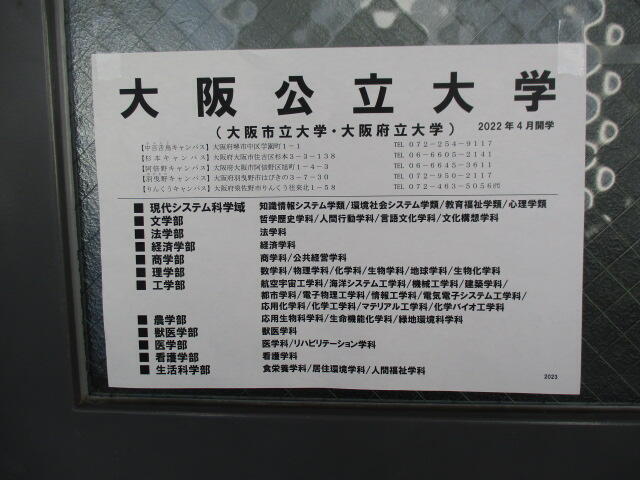 大阪公立大学
(大阪市立大学・大阪府立大学) 2022年4月開学
【中百舌鳥キャンパス】大阪府堺市中区学園町1-1 TEL 072-254-9117
【杉本キャンパス】大阪府大阪市住吉区杉本3-3-138 TEL 06-6605-2141
【阿倍野キャンパス】大阪府大阪市阿倍野区旭町1-4-3 TEL 06-6645-3611
【羽曳野キャンパス】大阪府羽曳野市はびきの3-7-30 TEL 072-950-2117
【りんくうキャンパス】大阪府泉佐野市りんくう往来北1-58 TEL 072-463-5056
■ 現代システム科学域 知識情報システム学類/環境社会システム学類/教育福祉学類/心理学類
■ 文学部 哲学歴史学科/人間行動学科/言語文化学科/文化構想学科
■ 法学部 法学科
■ 経済学部 経済学科
■ 商学部 商学科/公共経営学科
■ 理学部 数学科/物理学科/化学科/生物学科/地球学科/生物化学科
■ 工学部 航空宇宙工学科/海洋システム工学科/機械工学科/建築学科/
都市学科/電子物理工学科/情報工学科/電気電子システム工学科/
応用化学科/化学工学科/マテリアル工学科/化学バイオ工学科
■ 農学部 応用生物科学科/生命機能化学科/緑地環境科学科
■ 獣医学部 獣医学科
■ 医学部 医学科/リハビリテーション学科
■ 看護学部 看護学科
■ 生活科学部 食栄養学科/居住環境学科/人間福祉学科
2023